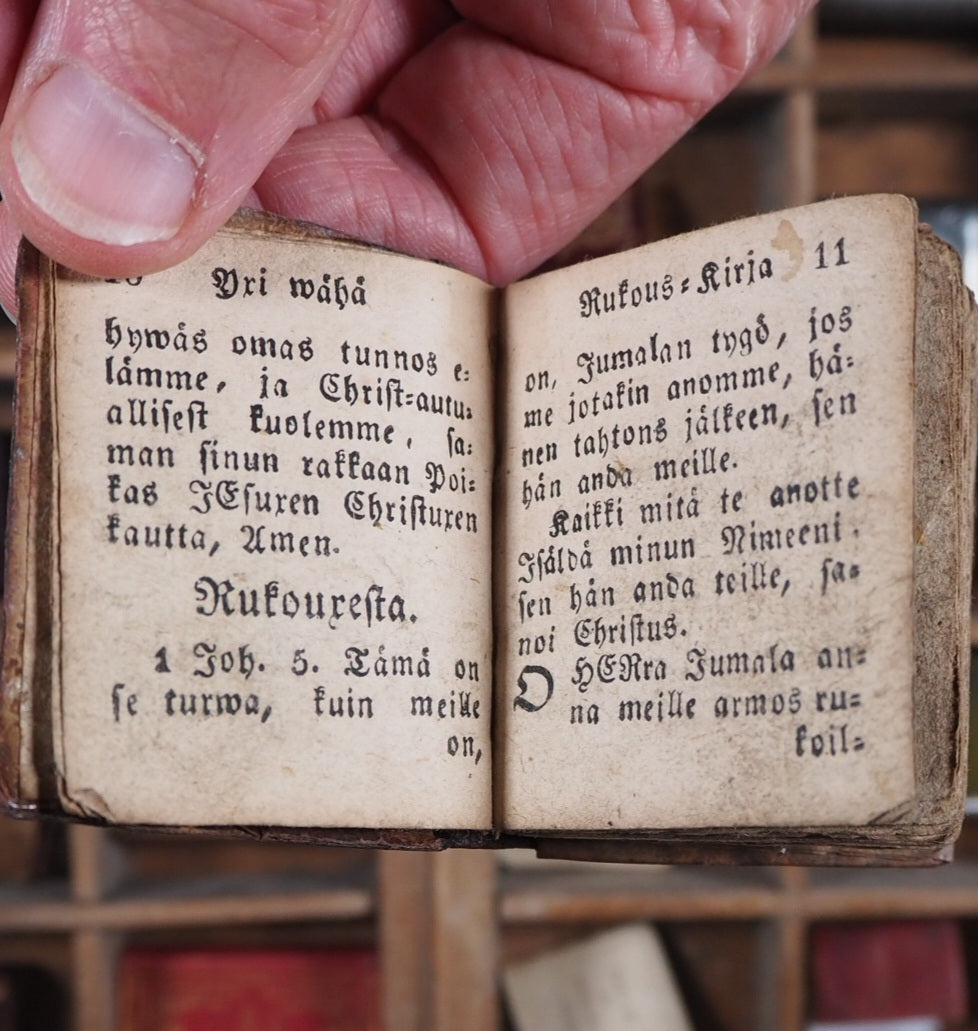 10 Yxi wähä
hywäs omas tunnos e⸗
lämme, ja Christ⸗autu⸗
allisest kuolemme, sa⸗
man sinun rakkaan Poi⸗
kas JEsuxen Christuxen
kautta, Amen.
Rukouxesta.
1 Joh. 5. Tämä on
se turwa, kuin meille
on,
Rukous⸗Kirja 11
on, Jumalan tygö, jos
me jotakin anomme, hä⸗
nen tahtons jälkeen, sen
hän anda meille.
Kaikki mitä te anotte
Isäldä minun Nimeeni.
sen hän anda teille, sa⸗
noi Christus.
O HERra Jumala an⸗
na meille armos ru⸗
koil⸗